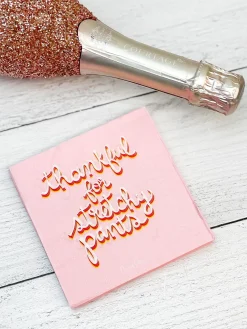 thankful
for
stretchy
pants